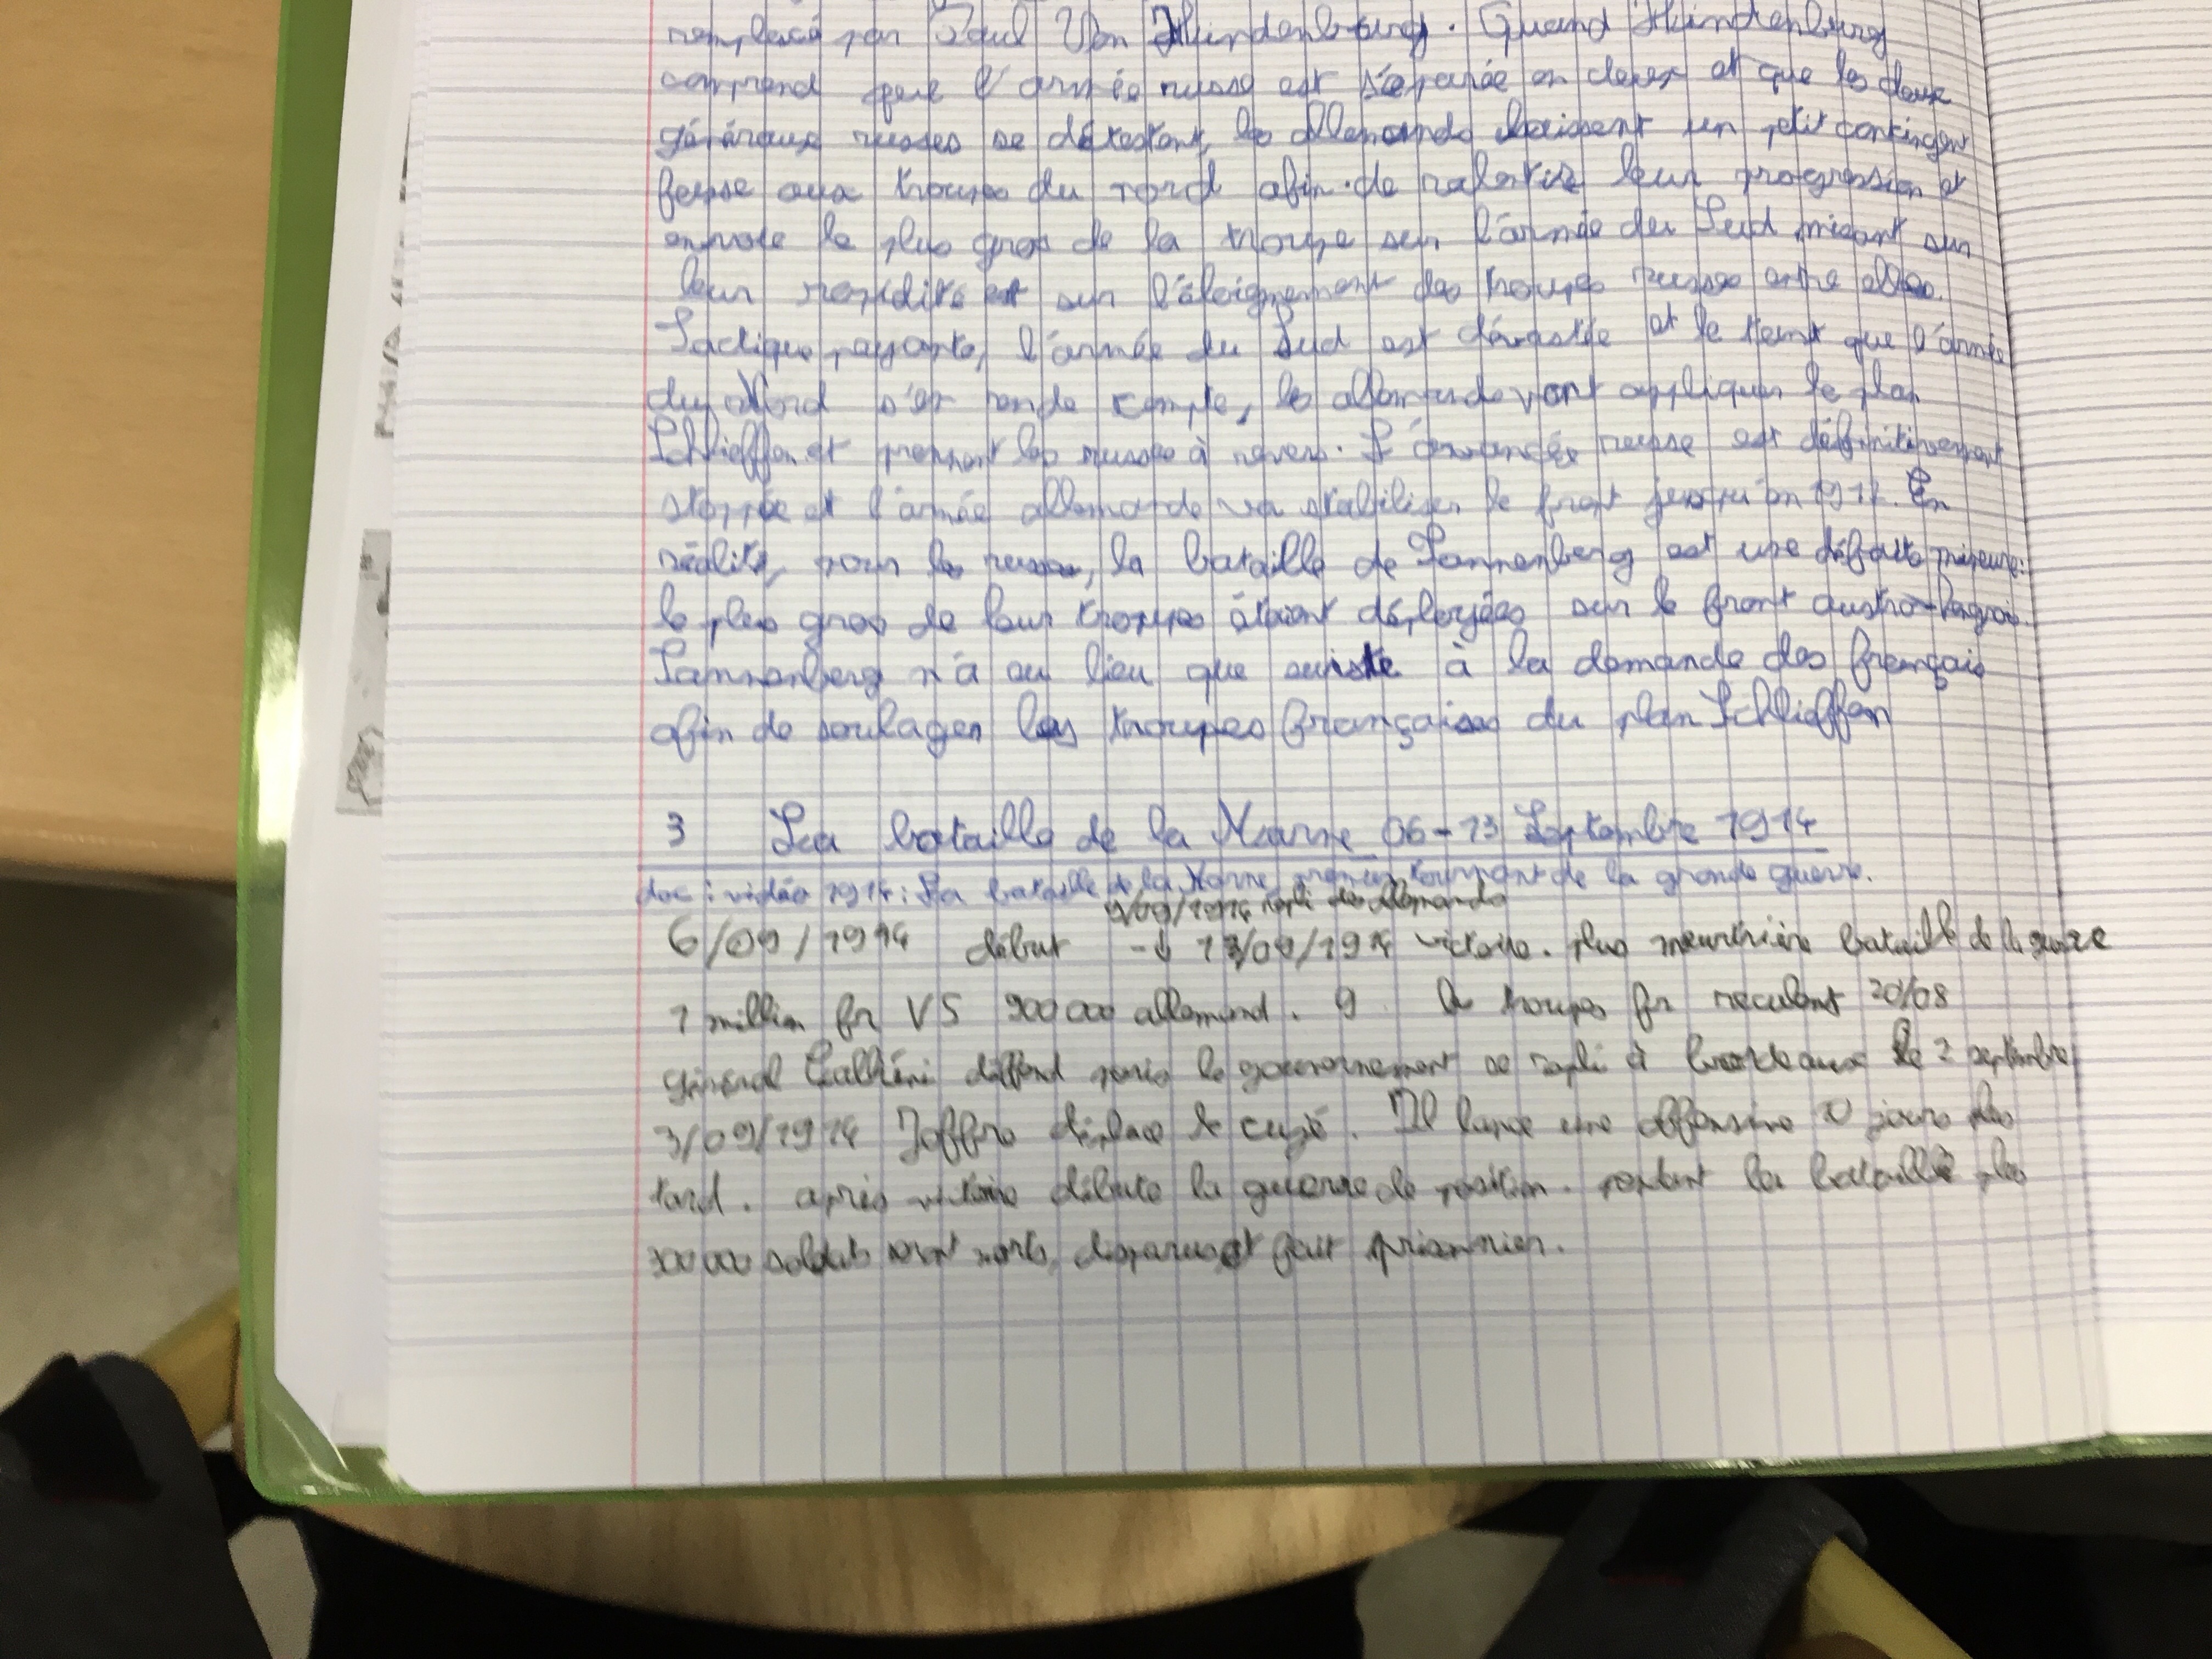 remplacé par Paul Von Hindenburg. Quand Hindenburg
comprend que l'armée russe est séparée en deux et que les deux
généraux russes se détestent, les allemands laissent un petit contingent
fasse aux troupes du nord afin de ralentir leur progression et
envoie le plus gros de la troupe sur l'armée du Sud misant sur
leur rapidité et sur l'éloignement des troupes russes entre elles.
Tactique payante, l'armée du Sud est dévastée et le temt que l'armée
du Nord s'en rende compte, les allemands vont appliquer le plan
Schlieffen et prennent les russes à revers. L'avancée russe est définitivement
stoppée et l'armée allemande va stabiliser le front jusqu'en 1917. En
réalité, pour les russes, la bataille de Tannenberg est une défaite mineure:
le plus gros de leur troupes étaient déployées sur le front austro-hongrois.
Tannenberg n'a eu lieu que suiste à la demande des français
afin de soulager les troupes françaises du plan Schlieffen
3 La bataille de la Marne 06-13 Septembre 1914
doc : vidéo 1914 : La bataille de la Marne, premier tournant de la grande guerre.
9/09/1914 repli des allemands
6/09/1914 début -↓ 13/09/1914 victoire. plus meurtrière bataille de la guerre
1 million fr VS 900 000 allemand. 9. les troupes fr reculent 20/08
général Galliéni déffend paris le gouvernement se repli à bordeaux le 2 septembre
3/09/1914 Joffre déplace le Il lance une offensive jours plus
tard. après victoire débute la guerre de position. pendant la bataille plus
300 000 soldats sont morts, disparus et fait prisonnier.